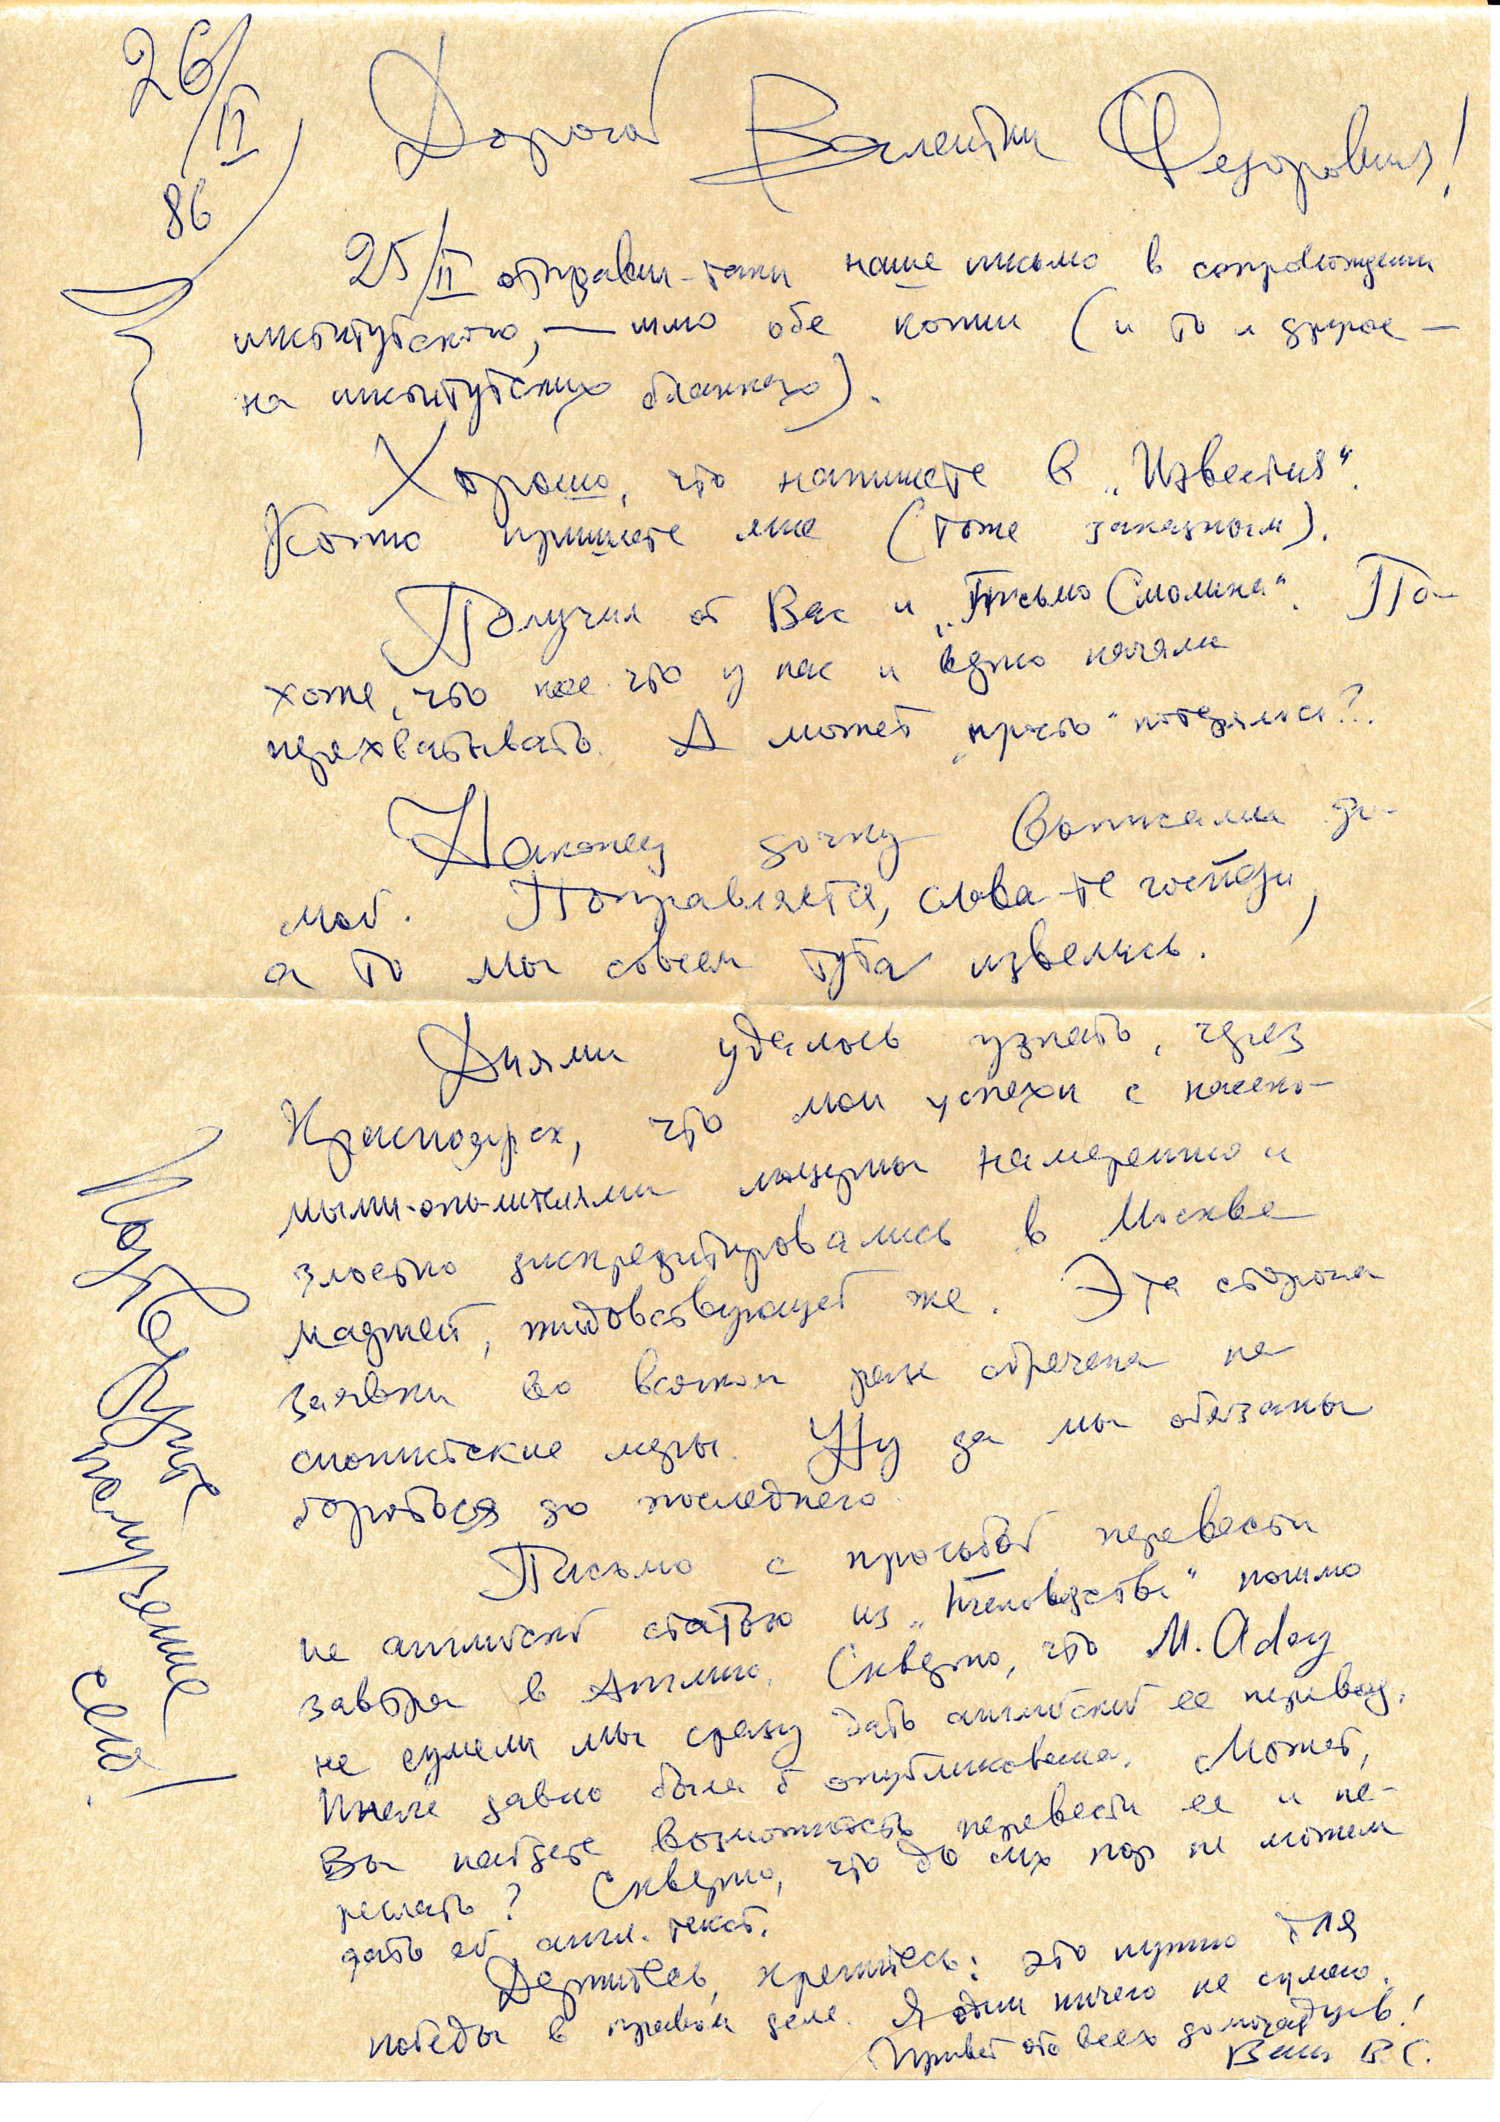 26/II
86
Дорогой Валентин Федорович!
25/II отправил-таки наше письмо в сопровождении
институтского, — шлю обе копии (и то и другое —
на институтских бланках).
Хорошо, что напишете в „Известия“.
Копию пришлете мне (тоже заказным).
Получил от Вас и „Письмо Смолина“. По-
хоже, что кое-что у нас и начали
перехватывать. А может „просто“ потерялись?..
Наконец дочку выписали до-
мой. Поправляется, слава-те господи,
а то мы совсем тута извелись.
Днями удалось узнать, через
Краснодарск, что мои успехи с насеко-
мыми-опылителями люцерны намеренно и
злостно дискредитировались в Москве
мафией, жидовствующей же. Эта сторона
заявки во всяком разе обречена на
сионистские меры. Ну да мы обязаны
бороться до последнего.
Письмо с просьбой перевести
на английский статью из „Пчеловодства“ пошлю
завтра в Англию. Скверно, что M. Adey
не сумели мы сразу дать английский ее перевод.
Иначе давно была б опубликована. Может,
Вы найдете возможность перевести ее и пе-
реслать? Скверно, что до сих пор не можем
дать ей англ. текст.
Держитесь, крепитесь: это нужно для
победы в правом деле. Я один ничего не сумею.
Привет ото всех домочадцев!
Ваш В.С.
Подтвердите получение
сего!